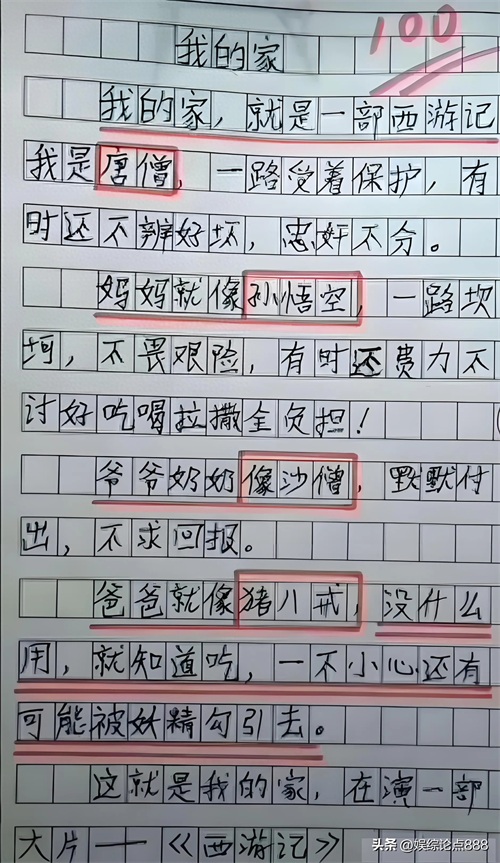 100
我的家
我的家，就是一部西游记
我是唐僧，一路受着保护，有
时还不辨好坏，忠奸不分。
妈妈就像孙悟空，一路坎
坷，不畏艰险，有时还费力不
讨好吃喝拉撒全负担！
爷爷奶奶像沙僧，默默付
出，不求回报。
爸爸就像猪八戒，没什么
用，就知道吃，一不小心还有
可能被妖精勾引去。
这就是我的家，在演一部
大片——《西游记》
头条 @娱综论点888